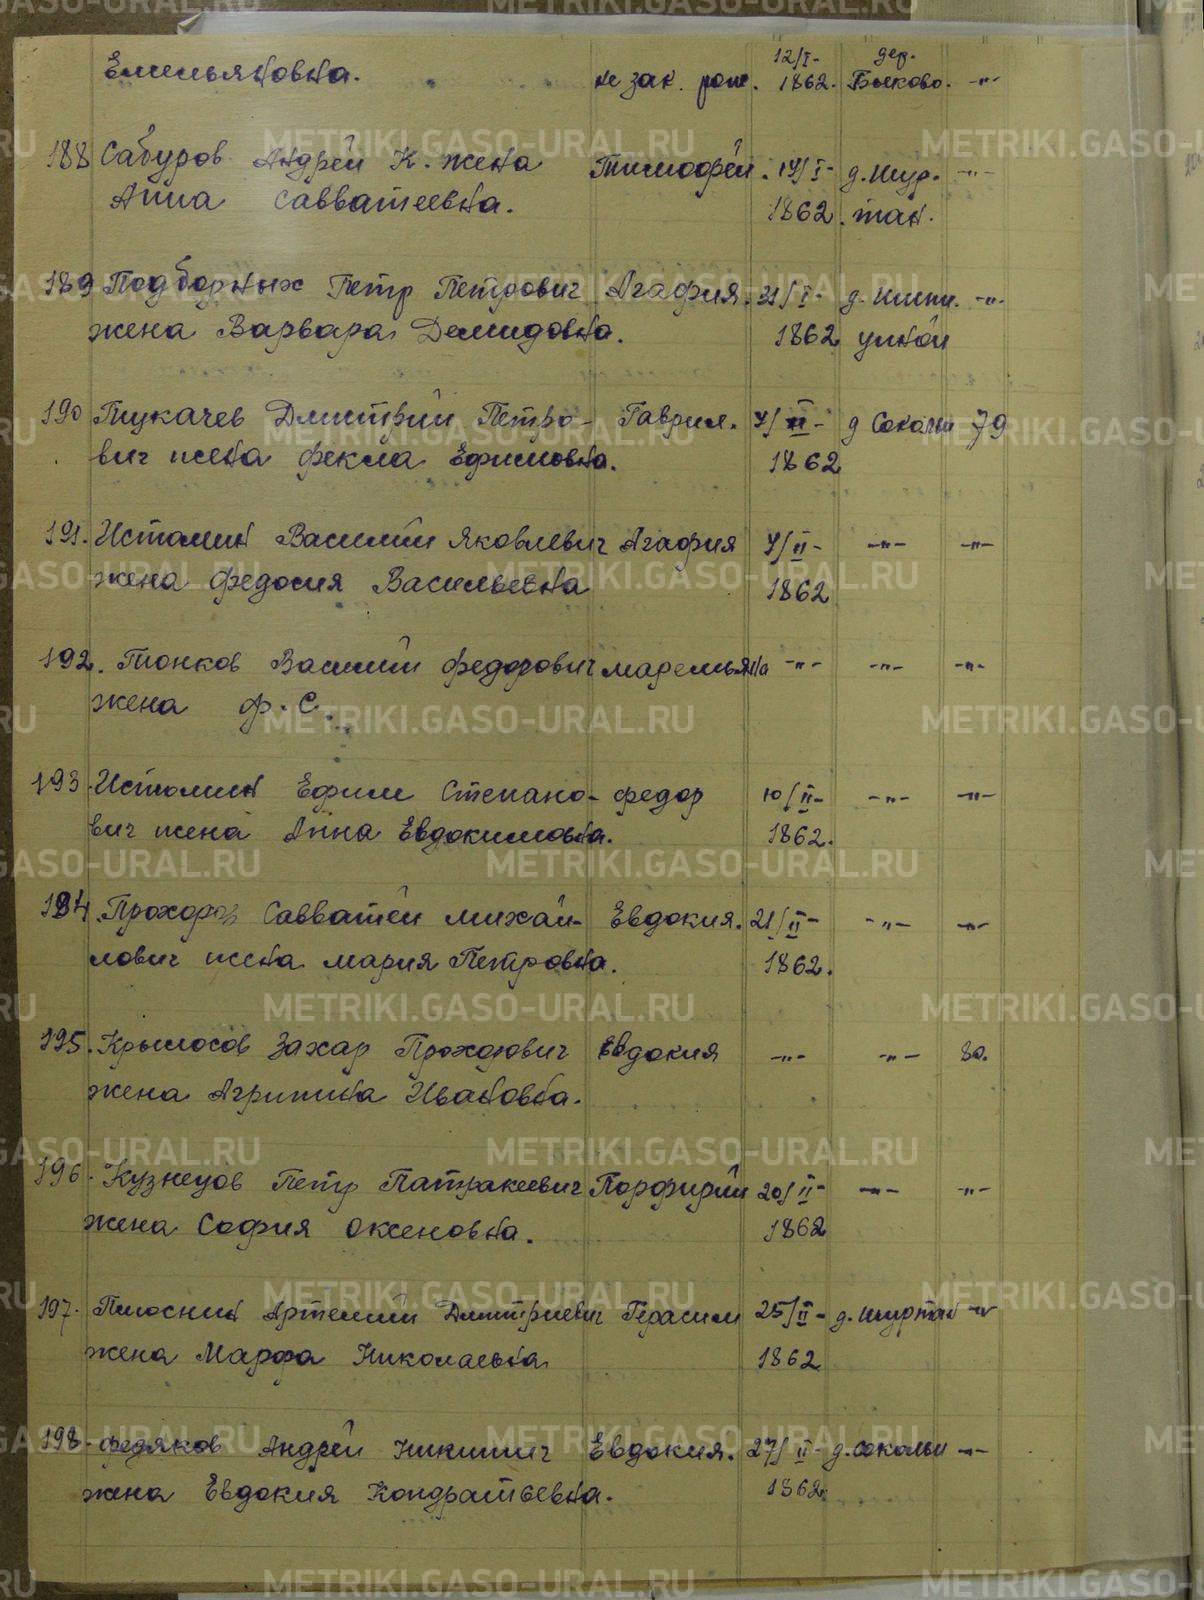 12/I-   дер.
Емельяновна.   не зак. рож.   1862.   Быково.   -"-
188   Сабуров   Андрей   К.   жена   Тимофей.   17/I-   д. Шур.   -"-
Анна   Савватеевна.   1862.   тан.
189   Подборных   Петр   Петрович   Агафия.   31/I-   д.   -"-
жена   Варвара   Демидовна.   1862
190   Пукачев   Дмитрий   Петро-   Гаврил.   7/II-   д   79
вич   жена   Фекла   Ефимовна.   1862
191.   Истомин   Василий   Яковлевич   Агафия   7/II-   -"-   -"-
жена   Федосия   Васильевна   1862
192.   Тонков   Василий   Федорович   Маремьяна   -"-   -"-   -"-
жена   Ф.   С.
193.   Истомин   Ефим   Степано-   Федор   10/II-   -"-   -"-
вич   жена   Анна   Евдокимовна.   1862.
194.   Прохоров   Савватей   Михай-   Евдокия.   21/II-   -"-   -"-
лович   жена   Мария   Петровна.   1862.
195.   Крылосов   Захар   Прохорович   Евдокия   -"-   -"-   80.
жена   Агрипина   Ивановна.
196.   Кузнецов   Петр   Патракеевич   Порфирий   20/II-   -"-   -"-
жена   София   Оксеновна.   1862
197.   Плюснин   Артемий   Дмитриевич   Герасим   25/II-   д. Шуртан   -"-
жена   Марфа   Николаевна   1862
198.   Федяков   Андрей   Никитич   Евдокия.   27/II-   д.   -"-
жена   Евдокия   Кондратьевна.   1862
METRIKI.GASO-URAL.RU